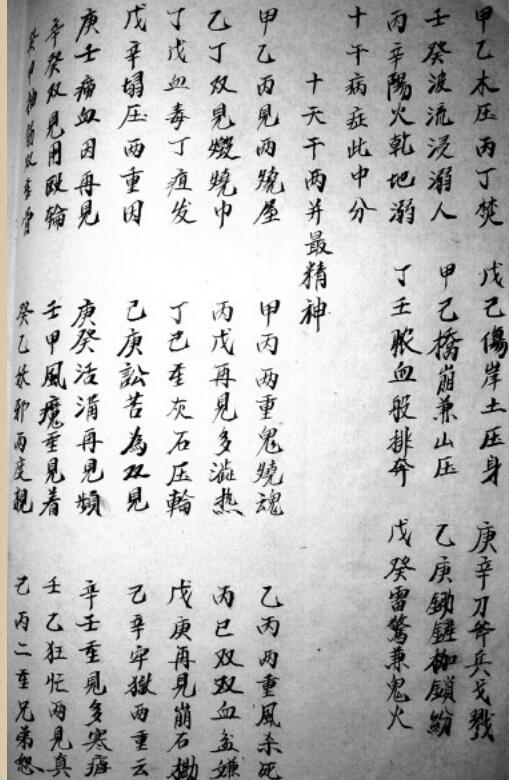 甲乙木压丙丁焚 戊己傷岸土压身 庚辛刀斧兵戈戮
壬癸波流浸溺人 甲己橋崩兼山压 乙庚鋤鎚枷鎖紛
丙辛陽火乾地溺 丁壬脓血般排奔 戊癸雷驚兼鬼火
十干病症此中分
十天干两并最精神
甲乙丙見两燒屋 甲丙两重鬼燒魂 乙丙两重風杀死
乙丁双見燬燒巾 丙戊再見多滋热 丙巳双双血盆嫌
丁戊血毒丁疽发 丁己重灰石压輪 戊庚再見崩石
戊辛塌压两重因 己庚訟苦為双見 己辛牢獄两重云
庚壬痛血因再見 庚癸活溝再見頻 辛壬重見多寒
辛癸双見用毆輪 壬甲風魔重見着 壬乙狂忙两見真
癸甲抽筋双重 癸乙妖邪两度親 己丙二重兄弟怒